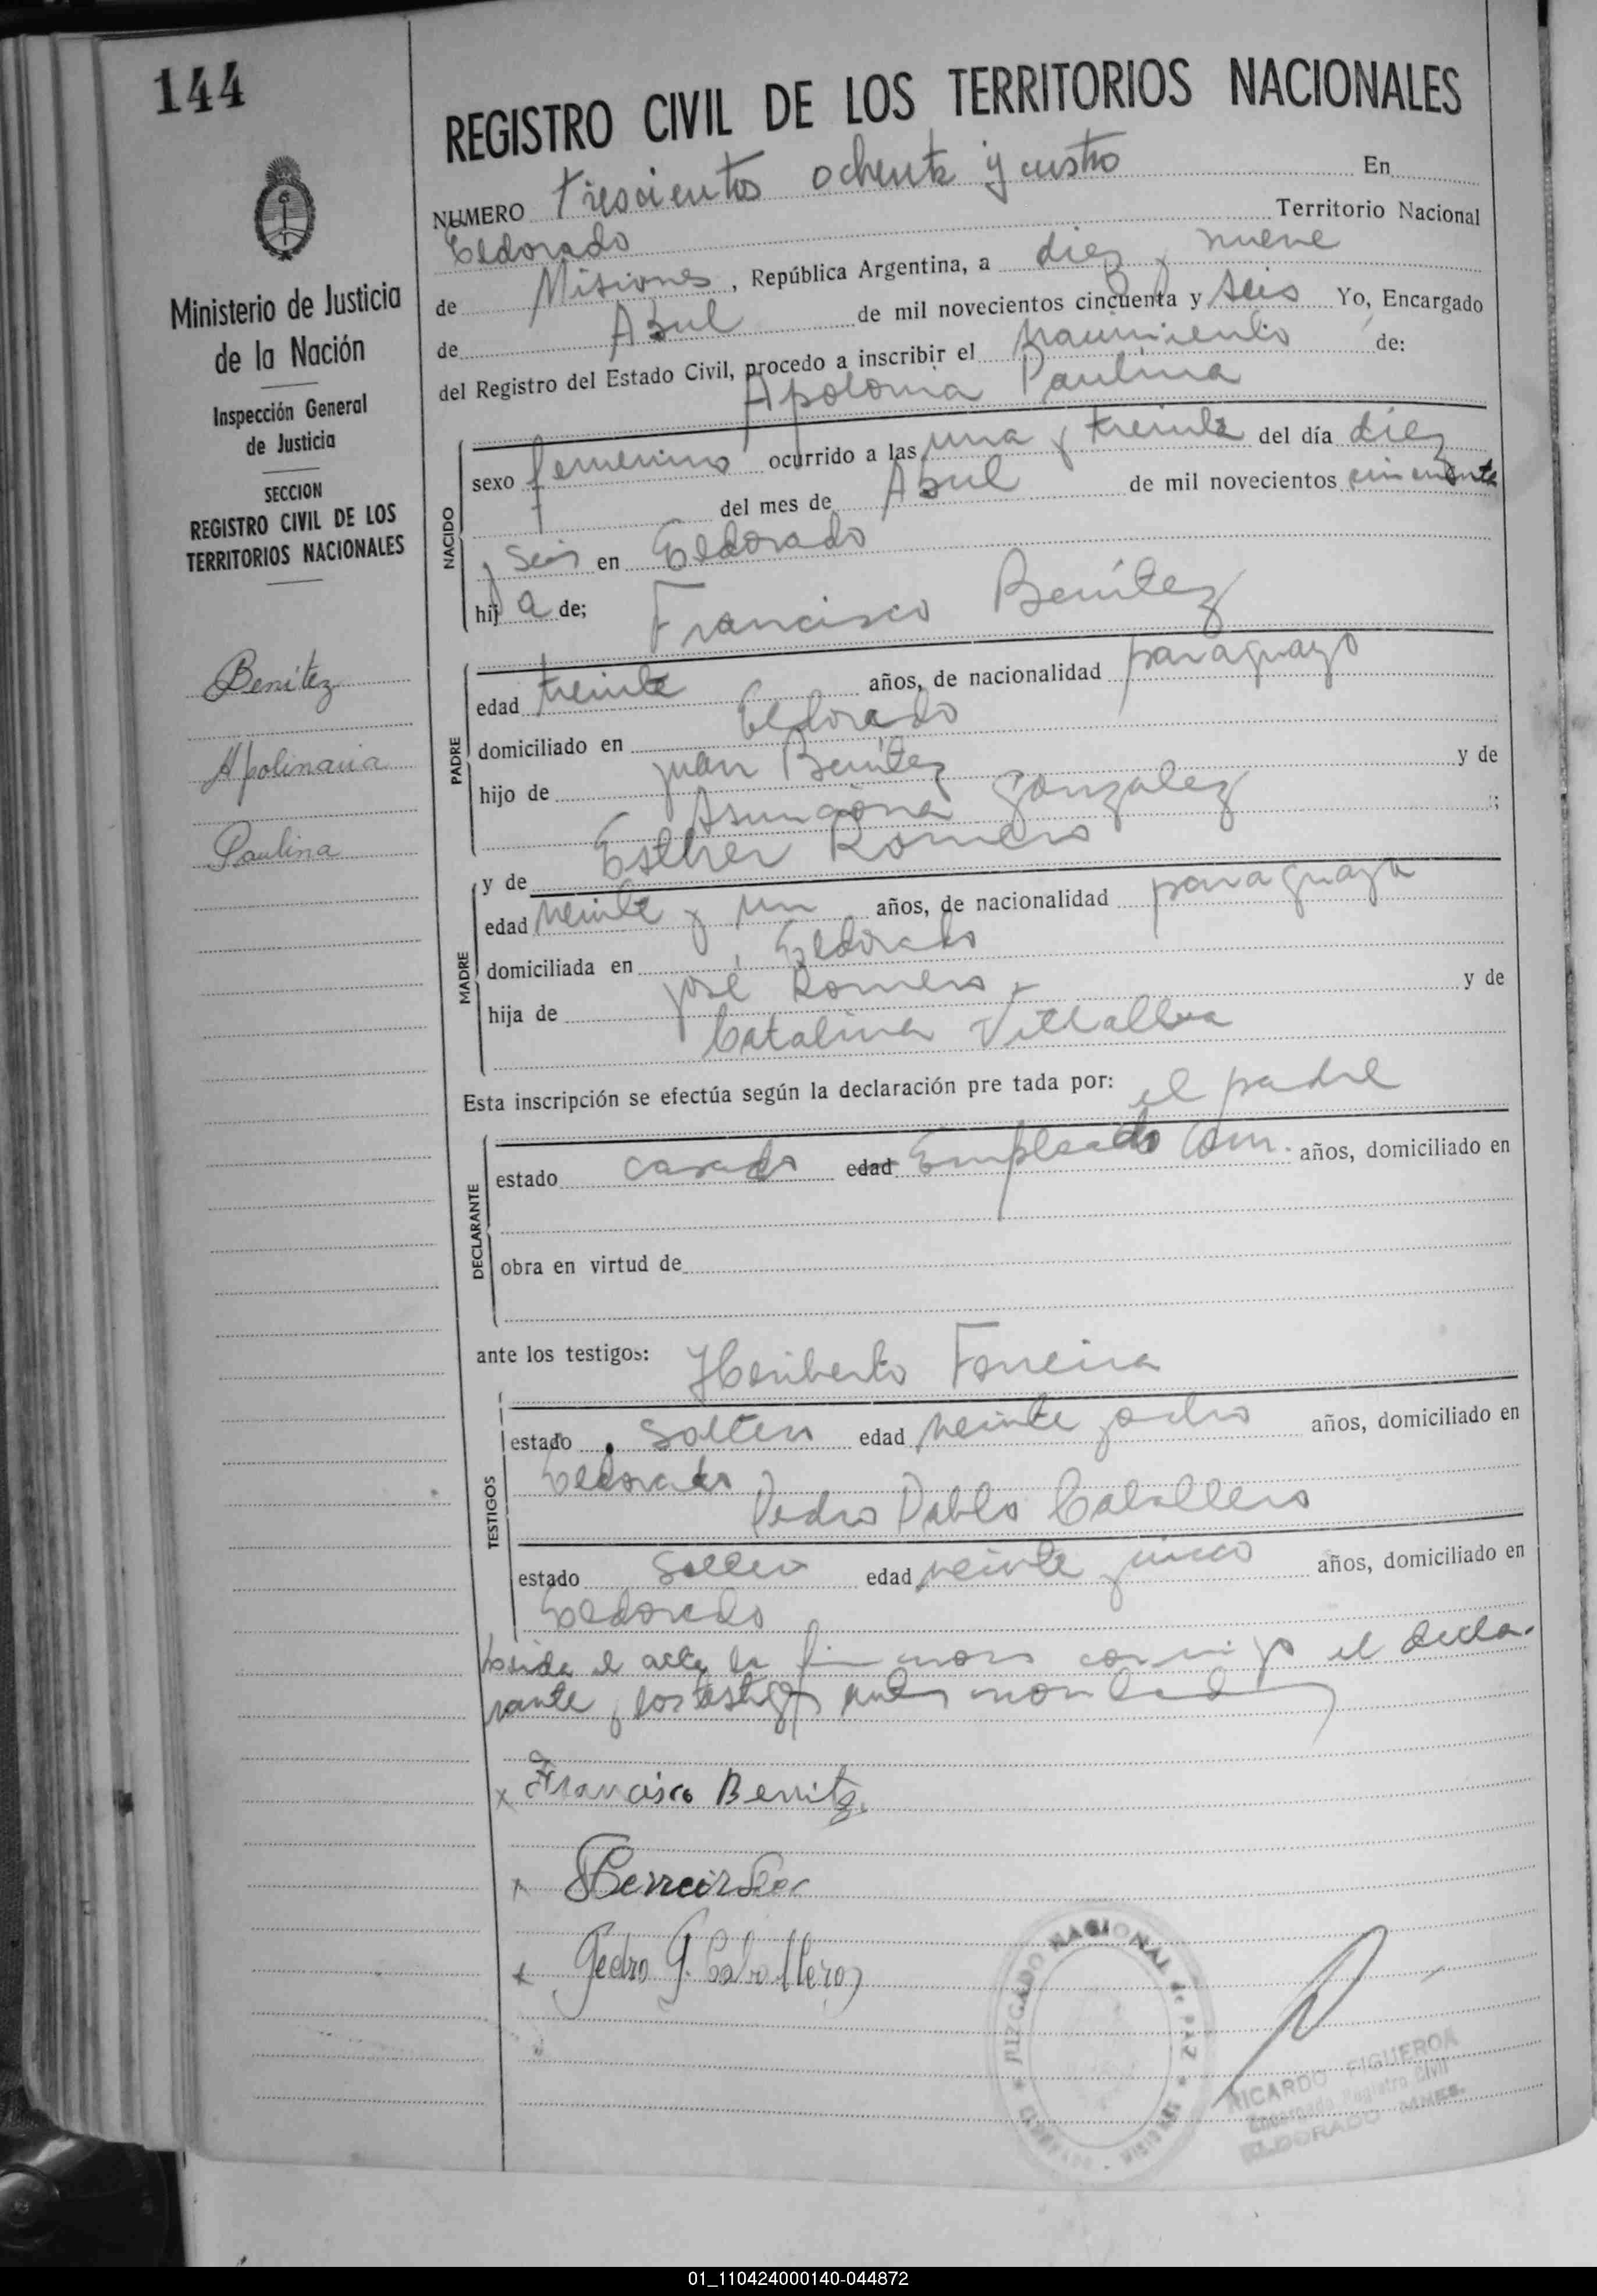 144
Ministerio de Justicia
de la Nación
Inspección General
de Justicia
SECCION
REGISTRO CIVIL DE LOS
TERRITORIOS NACIONALES
Benítez
Apolinaria
Paulina
REGISTRO CIVIL DE LOS TERRITORIOS NACIONALES
NUMERO trescientos ochenta y cuatro En
Eldorado Territorio Nacional
de Misiones, República Argentina, a diez y nueve
de Abril de mil novecientos cincuenta y seis Yo, Encargado
del Registro del Estado Civil, procedo a inscribir el nacimiento de:
Apolonia Paulina
NACIDO
sexo femenino ocurrido a las una y treinta del día diez
del mes de Abril de mil novecientos cincuenta
y seis en Eldorado
hij a de; Francisco Benítez
PADRE
edad treinta años, de nacionalidad paraguayo
domiciliado en Eldorado
hijo de Juan Benítez y de
Asunciona Gonzalez ;
y de Esther Romero
MADRE
edad veinte y un años, de nacionalidad paraguaya
domiciliada en Eldorado
hija de José Romero y y de
Catalina Villalba
Esta inscripción se efectúa según la declaración pre tada por: el padre
DECLARANTE
estado casado edad Empleado Com. años, domiciliado en
obra en virtud de
ante los testigos: Heriberto Ferreira
TESTIGOS
estado soltero edad veinte y ocho años, domiciliado en
Eldorado
Pedro Pablo Caballero
estado soltero edad veinte y cinco años, domiciliado en
Eldorado
Leida el acta la firmaron conmigo el decla-
rante y los testigos
x Francisco Benitez
x
x Pedro P. Caballero
JUZGADO NACIONAL de PAZ
RICARDO FIGUEROA
Encargado Registro Civil
ELDORADO
01_110424000140-044872